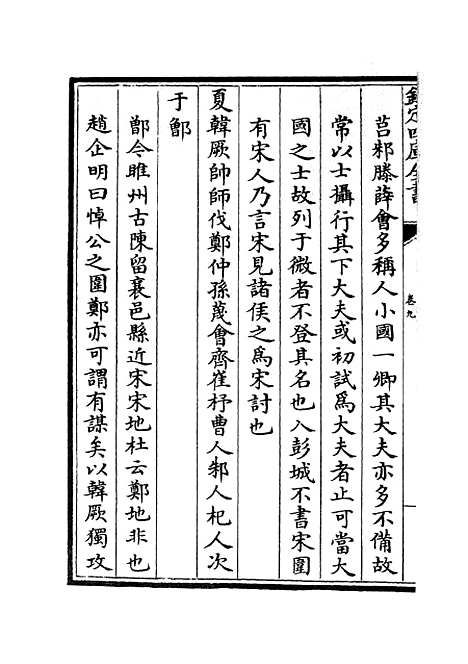 欽定四庫全書
卷九
莒邾滕薛會多稱人小國一卿其大夫亦多不備故
常以士攝行其下大夫或初試為大夫者止可當大
國之士故列于微者不登其名也入彭城不書宋圍
有宋人乃言宋見諸侯之為宋討也
夏韓厥帥師伐鄭仲孫蔑會齊崔杼曹人邾人杞人次
于鄫
鄫今睢州古陳留襄邑縣近宋宋地杜云鄭地非也
趙企明曰悼公之圍鄭亦可謂有謀矣以韓厥獨攻